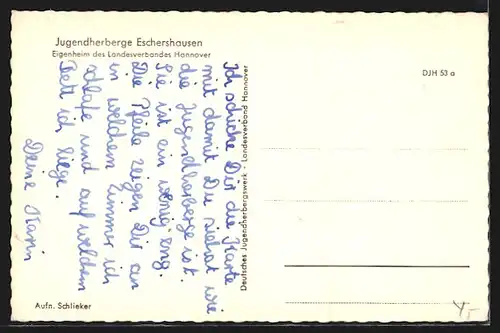 Jugendherberge Eschershausen
Eigenheim des Landesverbandes Hannover
DJH 53 a
Ich schicke Dir die Karte
mit damit Du siehst wie
die Jugendherberge ist.
Sie ist ein wenig eng.
Die Pfeile zeigen Dir an
in welchem Zimmer ich
schlafe und auf welchem
Bett ich liege.
Deine Karin
Deutsches Jugendherbergswerk · Landesverband Hannover
Aufn. Schlieker